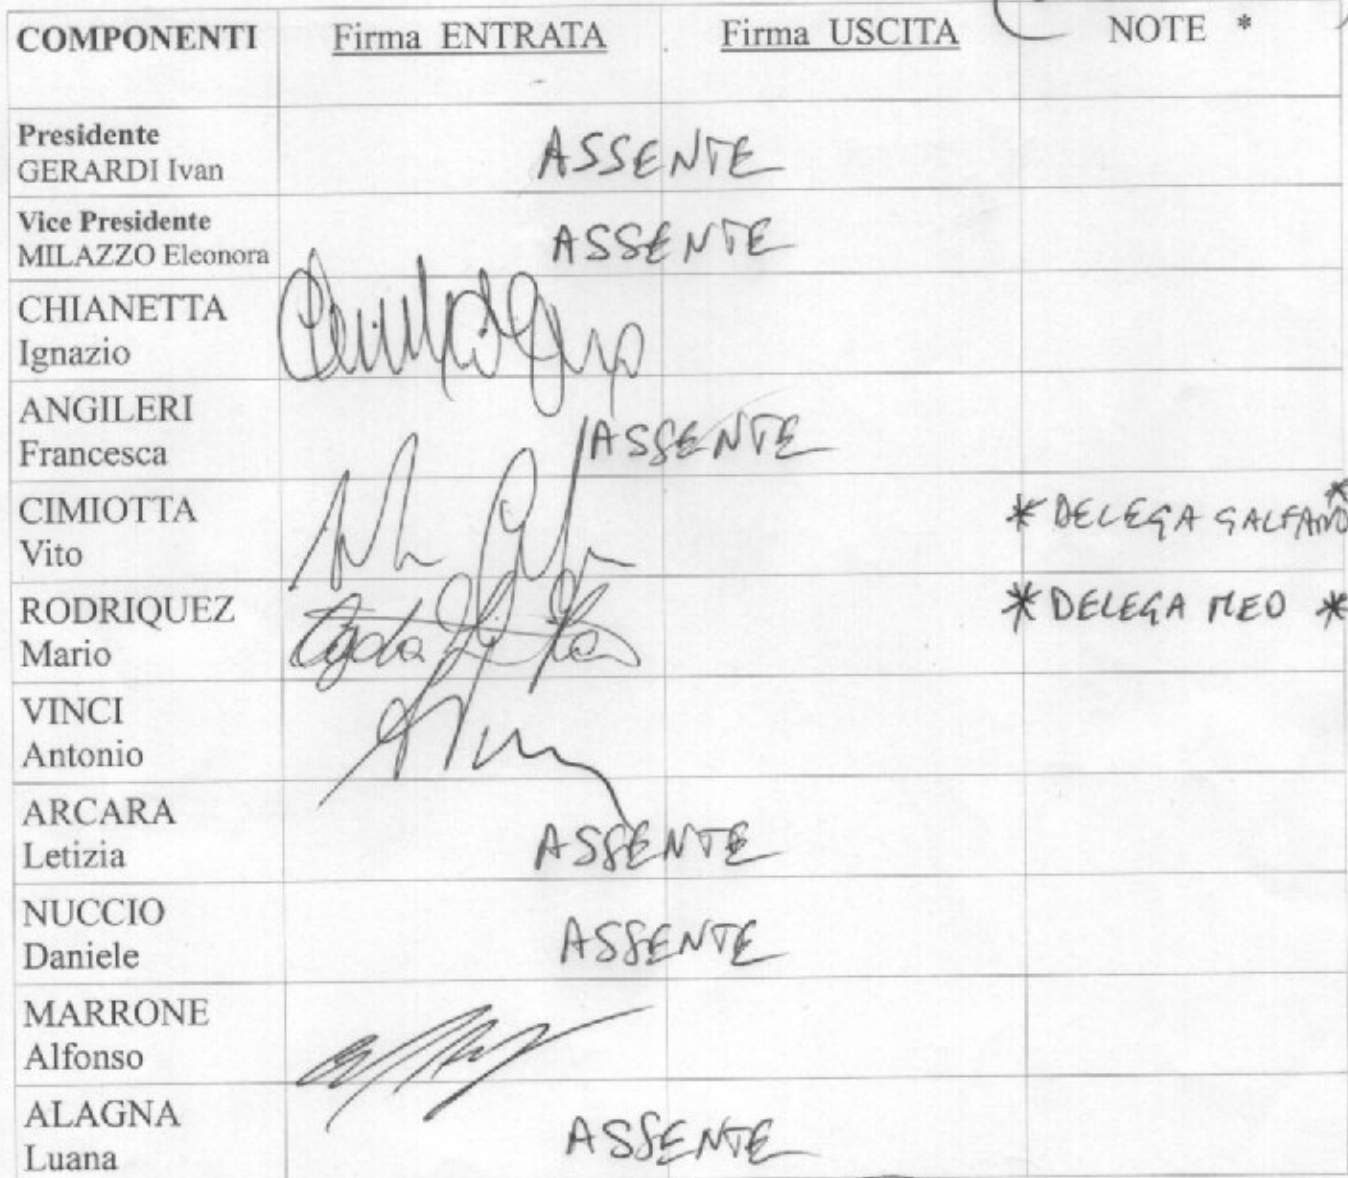 COMPONENTI Firma ENTRATA Firma USCITA NOTE *
Presidente
GERARDI Ivan ASSENTE
Vice Presidente
MILAZZO Eleonora ASSENTE
CHIANETTA
Ignazio
ANGILERI
Francesca ASSENTE
CIMIOTTA
Vito * DELEGA GALFANO *
RODRIQUEZ
Mario * DELEGA MEO *
VINCI
Antonio
ARCARA
Letizia ASSENTE
NUCCIO
Daniele ASSENTE
MARRONE
Alfonso
ALAGNA
Luana ASSENTE